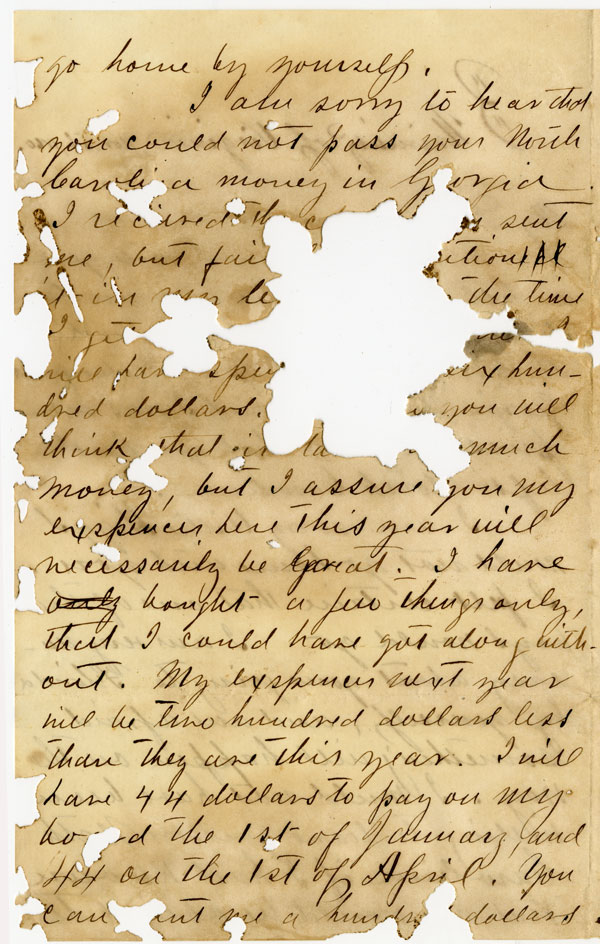 go home by yourself.
I am sorry to hear that
you could not pass your North
Carolina money in Georgia.
I recieved the sent
me, but
it in my the time
I get
will have hun-
dred dollars. you will
think that is much
money, but I assure you my
expences here this year will
necessarily be Great. I have
only bought a few things only,
that I could have got along with-
out. My expences next year
will be two hundred dollars less
than they are this year. I will
have 44 dollars to pay on my
board the 1st of January, and
44 on the 1st of April. You
can me a hundred dollars